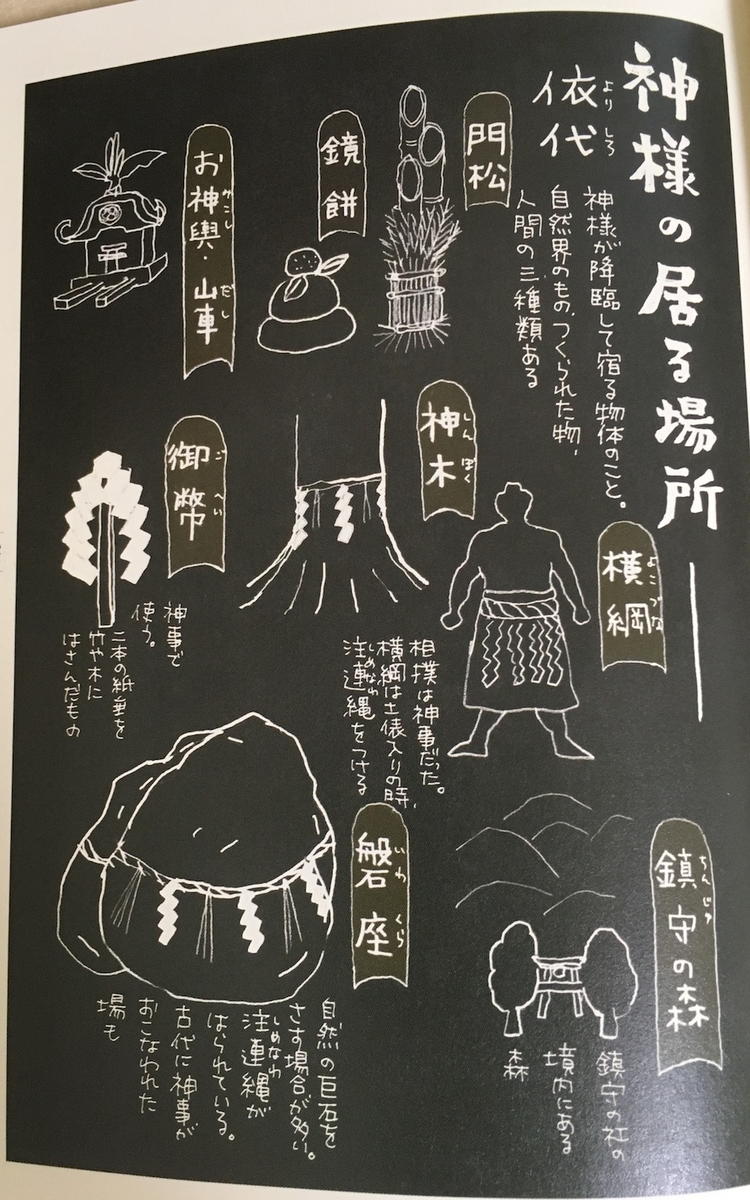 神様の居る場所
依代
よりしろ
神様が降臨して宿る物体のこと。
自然界のもの、つくられた物、
人間の三種類ある
門松
鏡餅
お神輿・山車
みこし
だし
神木
しんぼく
御幣
ごへい
神事で
使う。
二本の紙垂を
竹や木に
はさんだもの
横綱
よこづな
相撲は神事だった。
横綱は土俵入りの時、
注連縄をつける
しめなわ
磐座
いわくら
自然の巨石を
さす場合が多い。
注連縄が
しめなわ
はられている。
古代に神事が
おこなわれた
場も
鎮守の森
ちんじゅ
鎮守の社の
境内にある
森